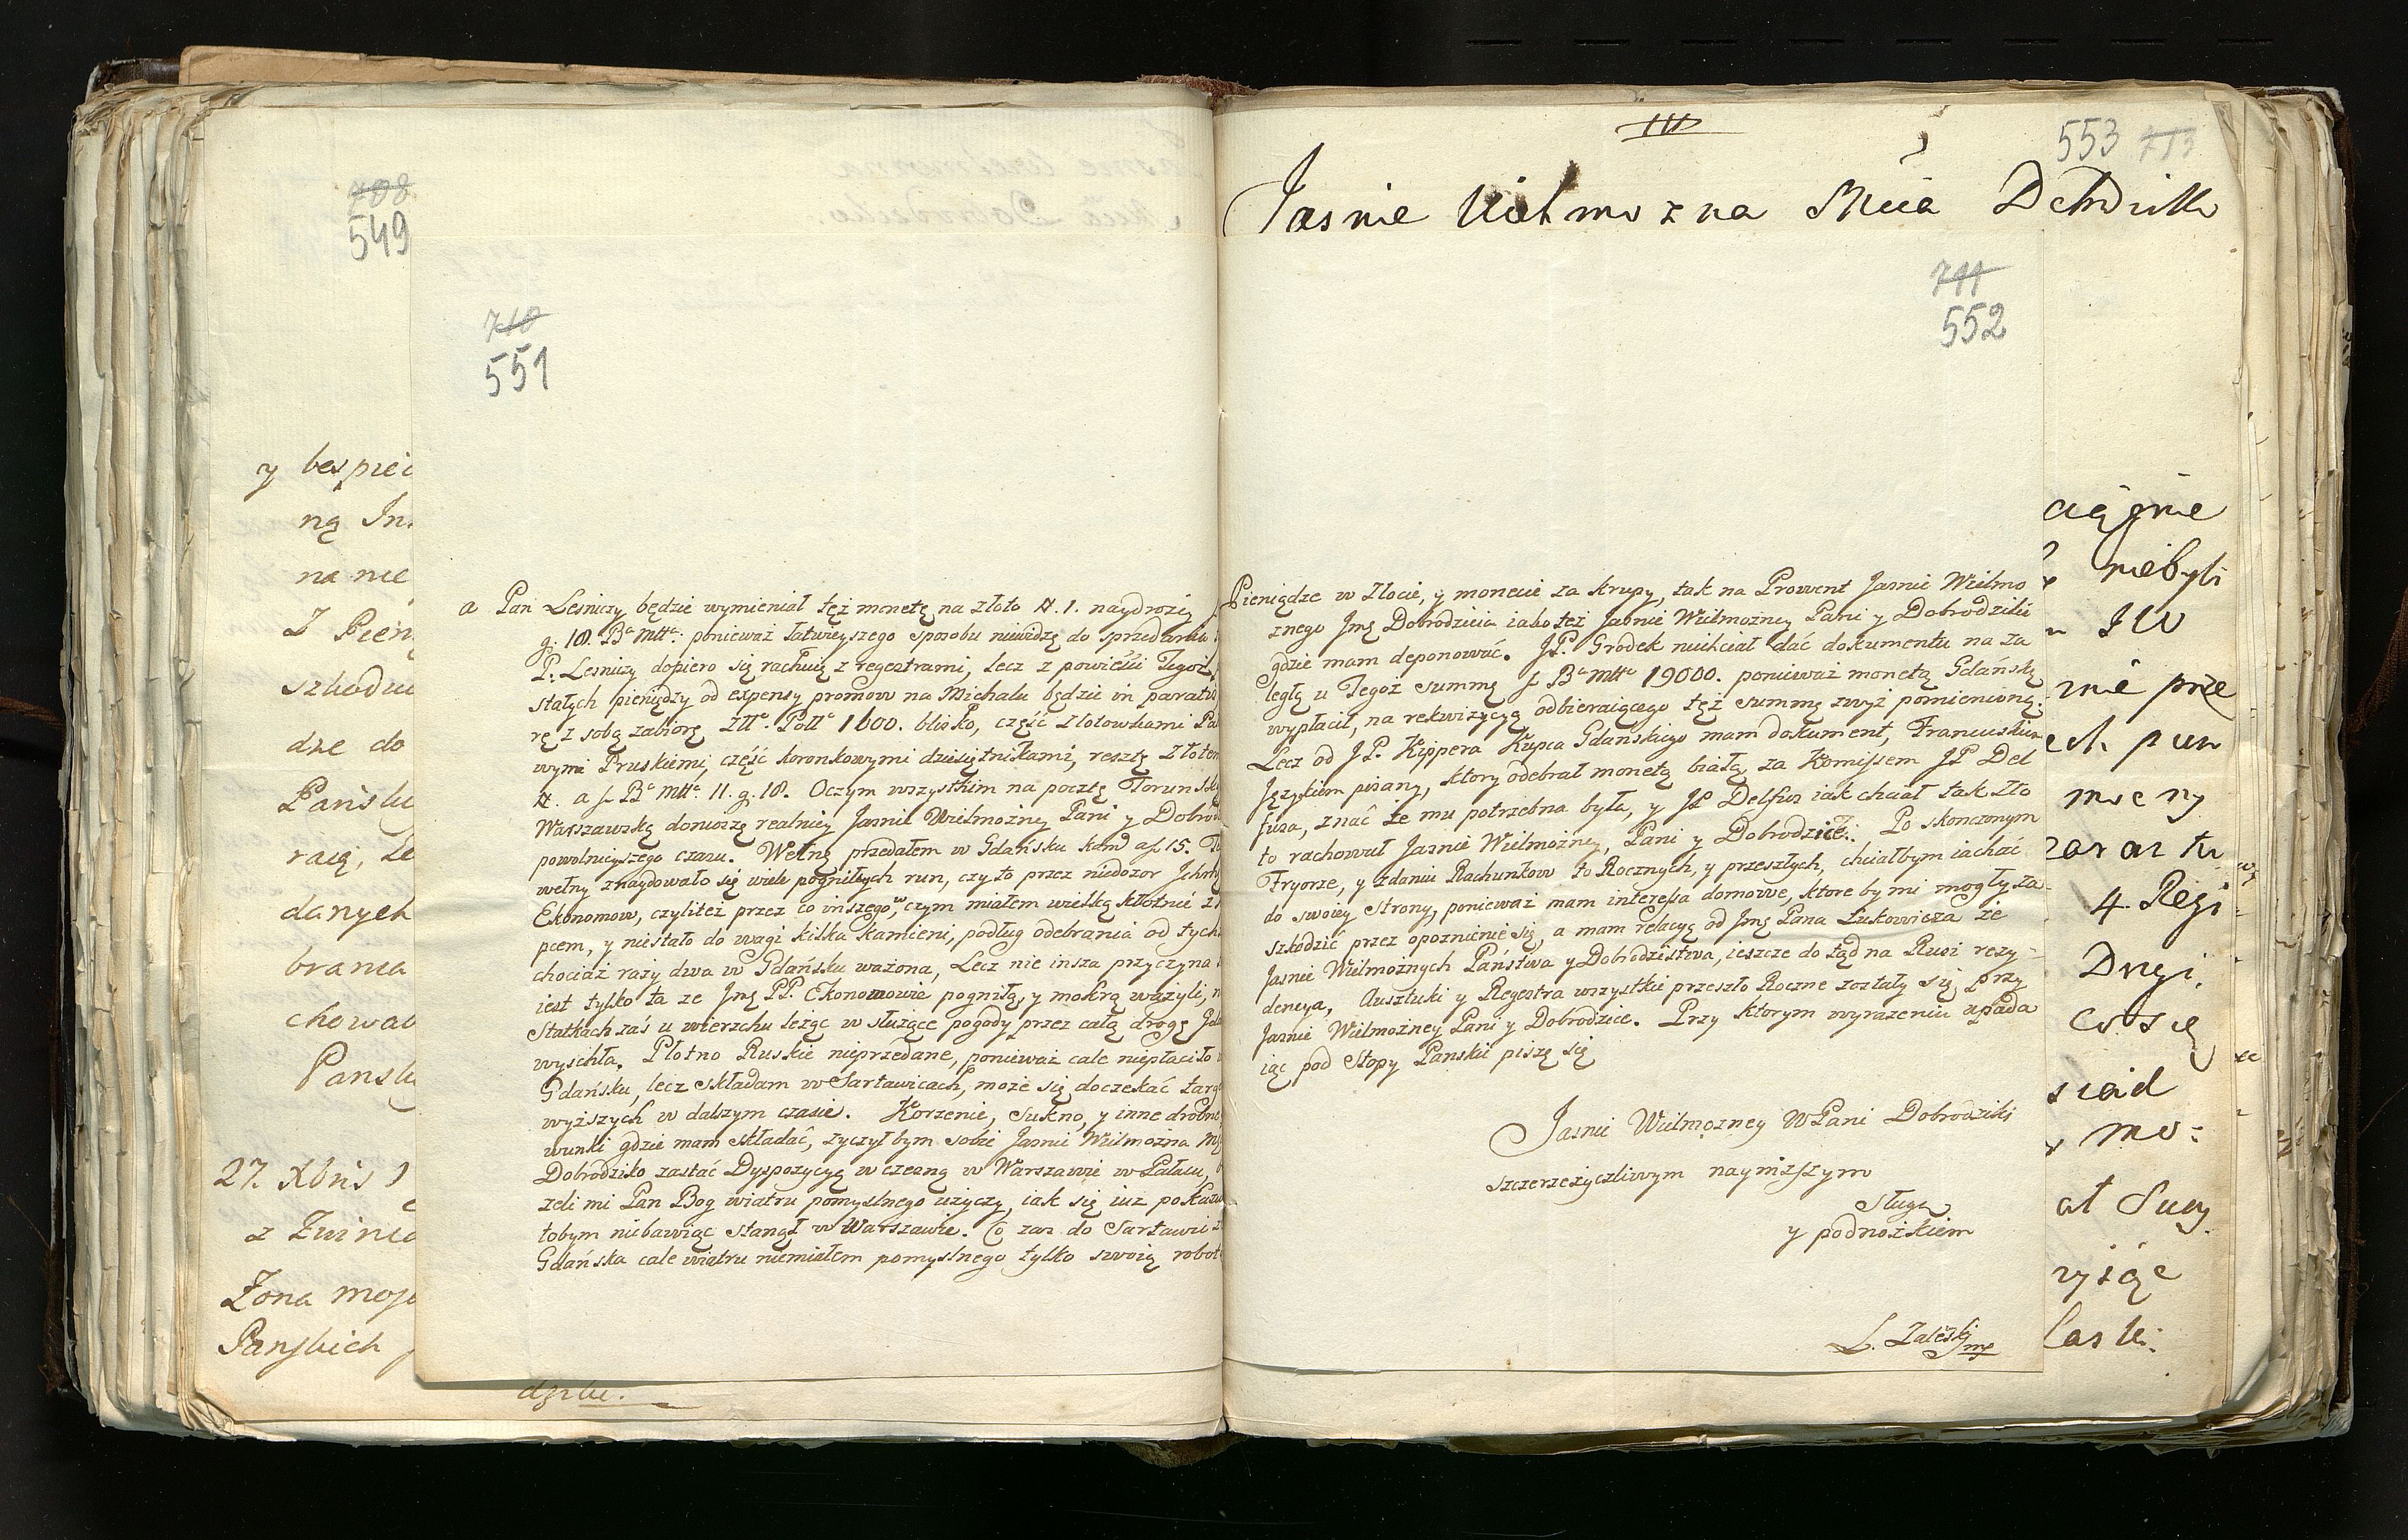 708
549
y bespiec
ną In
na nie
Z Pien
szkodu
dze do
Pansk
raią, Ze
danych
brania
chowa
Pansk
27. Xbris
z Zwinia
Zona moja
Panskich
710
551
a Pan Lesniczy będzie wymieniał tęż monetę na złoto #. 1. naydrożey
g. 18. Bᵃ Mttᵃ: ponieważ łatwieyszego sposobu niewidzę do sprzedania
P. Lesniczy dopiero się rachuię z regestrami, lecz z powieści Tegoż,
stałych pieniędzy od expensy promow na Michała będzie in parato
rę z sobą zabiorę Złlᵒ. Pollᵒ 1600. blisko, część złotowkami
wymi Pruskiemi, część koronkowymi dziesiętnikami, resztę złotem
#. a f. Bᵃ Mttᵃ. 11. g. 18. Oczym wszystkim na pocztę Torunską
Warszawską donioszę realniey Jasnie Wielmożney Pani y Dobrod
powolnieyszego czasu. Wełnę przedałem w Gdańsku kam̄ a f. 15.
wełny znaydowało się wiele pogniłych run, czy to przez niedozor
Ekonomow, czyliteż przez co inszego, w czym miałem wielką kłotnię z
pcem, y niestało do wagi kilka kamieni, podług odebrania od tych
chociaż razy dwa w Gdańsku ważona, Lecz nie insza przyczyna
iest tylko ta ze Jmę PP. Ekonomowie pogniłą, y mokrą ważyli,
Statkach zaś u wierzchu leżąc w służące pogody przez całą drogę
wyschła. Płotno Ruskie nieprzedane, ponieważ cale niepłaciło
Gdańsku, lecz składam w Sartawicach, może się doczekać targ
wyższych w dalszym czasie. Korzenie, Sukno, y inne drobne
wunki gdzie mam składać, życzyłbym sobie Jasnie Wielmożna
Dobrodziko zastać Dyspozycyą wczesną w Warszawie w Pałacu,
zeli mi Pan Bog wiatru pomyslnego użyczy, iak się iuż pokazu
tobym niebawiąc stanął w Warszawie. Co zas do Sartawic z
Gdańska cale wiatru niemiałem pomyslnego tylko swoią robot
dzbie.
III
553 713
Jasnie Wielmozna Mcia Dobrodziko
711
552
Pieniądze w złocie, y monecie za krupy, tak na Prowent Jasnie Wielmo
znego Jmę Dobrodzieia iako też Jasnie Wielmożney Pani y Dobrodziki
gdzie mam deponować. JP. Grodek niechciał dać dokumentu na za
ległą u Tegoż summę f Bᵃ Mttᵃ 19000. ponieważ monetą Gdańską
wypłacił, na rekwizycyą odbieraiącego też summę zwyż pomienioną.
Lecz od JP. Kippera Kupca Gdańskiego mam dokument, Francuskim
Językiem pisany, ktory odebrał monetą białą, za Komissem JP Del
fusa, znać że mu potrzebna była, y JP Delfus iak chciał tak zło
to rachował Jasnie Wielmożney, Pani y Dobrodzice. Po skonczonym
Fryorze, y zdaniu Rachunkow to Rocznych, y przeszłych, chciałbym iachać
do swoiey Strony, ponieważ mam interessa domowe, ktore by mi mogły za-
szkodzić przez opoznienie się, a mam relacyą od Jmę Pana Łukowicza że
Jasnie Wielmożnych Państwa y Dobrodzieistwa, ieszcze do tąd na Rusi rezy-
dencya, Auszłuki y Regestra wszystkie przeszło Roczne zostały się przy
Jasnie Wielmożney Pani y Dobrodzice. Przy ktorym wyrazeniu upada
iąc pod Stopy Panskie piszę się
Jasnie Wielmozney WPani Dobrodziki
szczerzeżyczliwym nayniższym
Sługą
y podnożkiem
L. Zaleski mp
ciągnie
niebyli
JW
nie prze
mocny
4. Regi
Drugi
Co się
siad
mo: